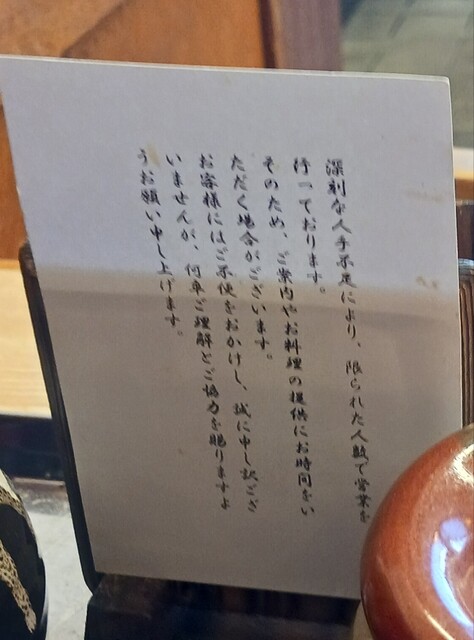 深刻な人手不足により、限られた人数で営業を
行っております。
そのため、ご案内やお料理の提供にお時間をい
ただく場合がございます。
お客様にはご不便をおかけし、誠に申し訳ござ
いませんが、何卒ご理解とご協力を賜りますよ
うお願い申し上げます。